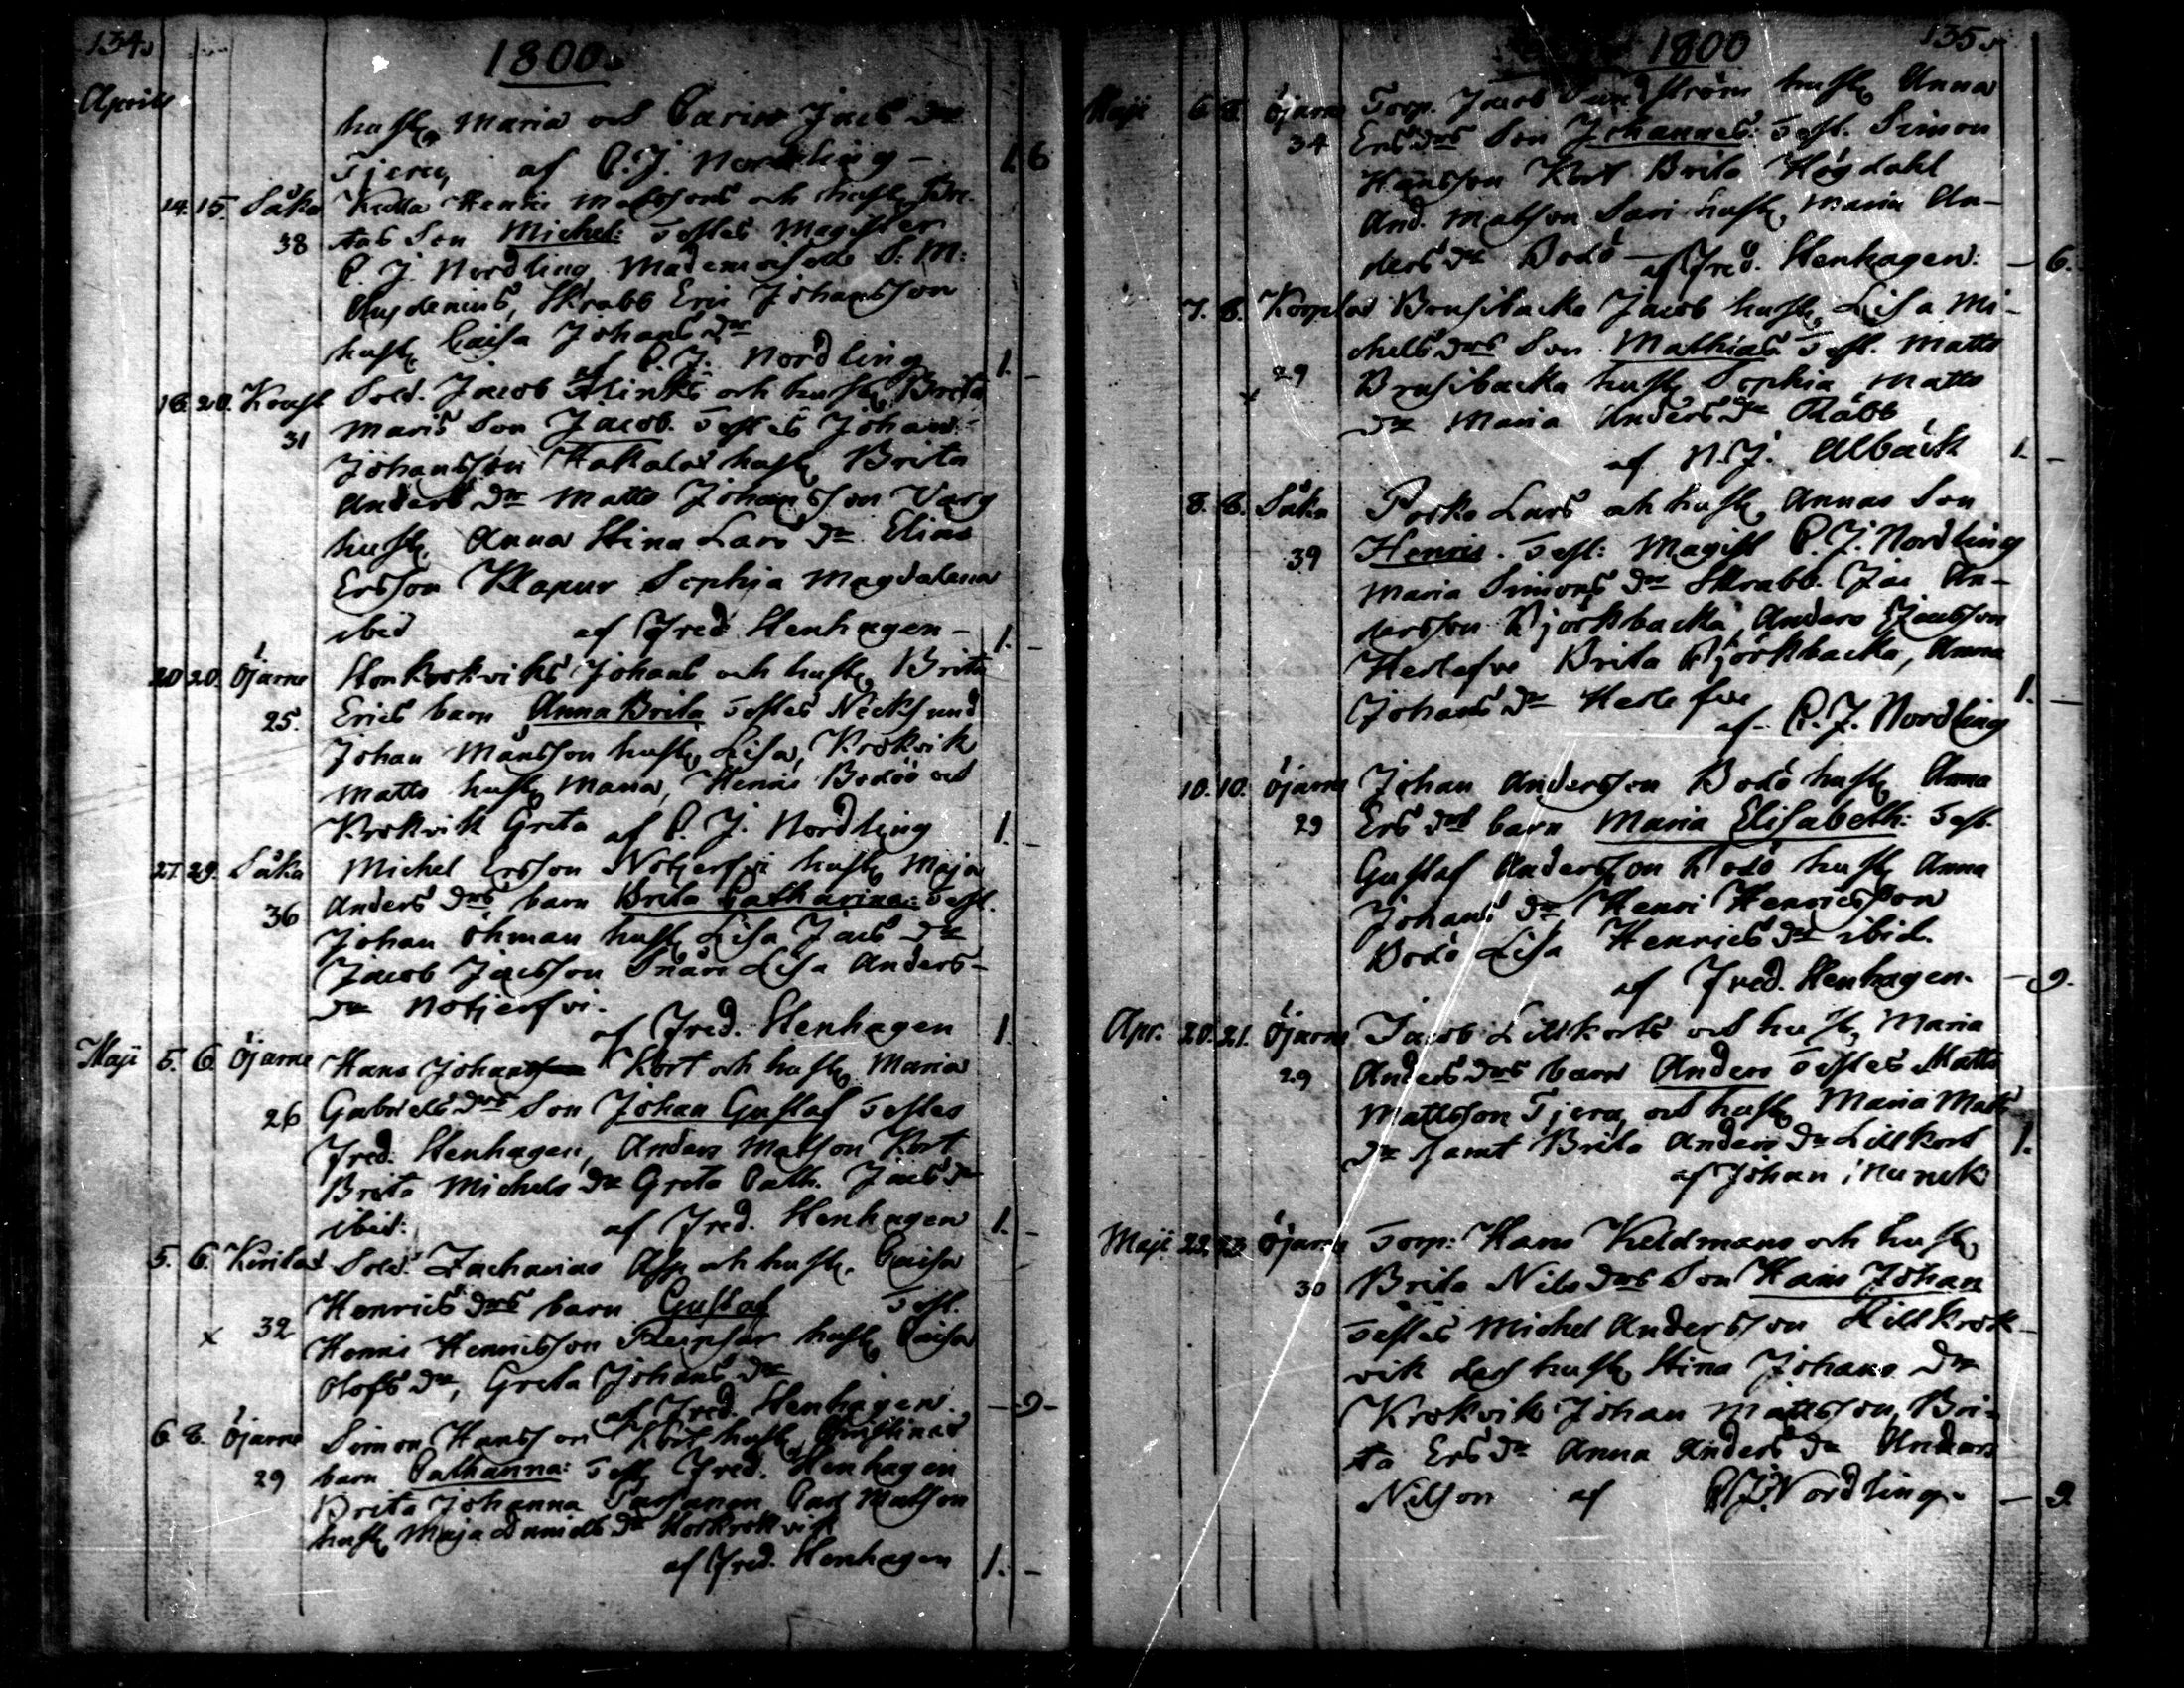 134.
1800.
Aprill
hust. Maria och Carin Jacs dr
Tjeru, af C. J. Nordling — 1. 6
14. 15. Såka Kedla Henric Matssons och hust. Gre-
38 tas Son Michel: Testes Magister
C. J. Nordling Mademoiselle S: M:
Skrabb Eric Johansson
hust. Caisa Johans dr
af C. J. Nordling 1. —
16. 20. Sold. Jacob Klinks och hust. Brita
31 Maris Son Jacob. Testes Johan
Johansson hust. Brita
Anders dr Matts Johansson Varg
hust. Anna Stina Lars dr. Elias
Ersson Klapur Sophia Magdalena
ibid af Fred Stenhagen — 1. —
20 20. Öjarne Storkrokviks Johans och hust. Brita
25. Erics barn Anna Brita Testes Necksund
Johan Månsson hust. Lisa, Krokvik
Matts hust. Maria, Henric Bodöö och
Krokvik Greta af C. J. Nordling 1. —
27. 29. Såka Michel Ersson Notjerfvi hust. Maja
36 Anders drs barn Brita Catharina: Test.
Johan Öhman hust. Lisa Jacs dr
Jacob Jacsson Snåre Lisa Anders-
dr Notjerfvi.
af Fred. Stenhagen 1.
Maji 5. 6. Öjarne Hans Johans Kort och hust. Maria
26 Gabriels drs Son Johan Gustaf Testes
Fred. Stenhagen, Anders Matson Kort
Brita Michels dr Greta Cath. Jacs dr
ibid: af Fred. Stenhagen 1. —
5. 6. Sold. Zacharias Asp och hust. Caisa
Henrics drs barn Gustaf Test.
x 32 Henric Henricsson hust. Caisa
Olofs dr, Greta Johans dr
af Fred. Stenhagen. — 9 —
6 8. Öjarne Simon Hansson Kort hust. Christinas
29 barn Cathanna: Test. Fred. Stenhagen
Brita Johanna Carl Matson
hust. Maja Daniels dr Storkrokvik
af Fred. Stenhagen 1. —
135.
1800
Maji 6. 8. Öjarne Torp. Jacob Sundström hust. Anna
34 Ers drs Son Johannes: Test. Simon
Hansson Kort Brita Högdahl
And. Matson Sari hust. Maria An-
ders dr Bodö — af Fred. Stenhagen: — 6.
7. 8. Korplax Brusibacka Jacob hust. Lisa Mi-
chels drs Son Mathias Test. Matts
29 Brusibacka hust. Sophia Matts
dr Maria Anders dr Räbb
af N. J. Albäck 1. —
8. 8. Såka Porko Lars och hust. Annas Son
39 Henric. Test: Magist C. J. Nordling
Maria Simons dr Skrabb. Jac An-
dersson Björkbacka Anders Jacobsson
Herlefve Brita Björkbacka, Anna
Johans dr Herlefve 1. —
af C. J. Nordling
10. 10. Öjarne Johan Andersson Bodö hust. Anna
29 Ers drs barn Maria Elisabeth: Test.
Gustaf Andersson Bodö hust. Anna
Johans dr Henri Henricsson
Bodö Lisa Henrics dr ibid.
af Fred. Stenhagen. — 9.
Apr. 20. 21. Öjarne Jacob Lillkorts och hust. Maria
29 Anders drs barn Anders Testes Matts
Mattsson Tjeru, och hust. Maria Mats
dr samt Brita Anders dr Lillkort 1.
af Johan
Maji 23. 23 Öjarne Torp: Hans Keldmans och hust.
30 Brita Nils drs Son Hans Johan
Testes Michel Andersson Lillkrok-
vik des hust. Stina Johans dr
Krokvik Johan Mattsson, Bri-
ta Ers dr Anna Anders dr Anders
Nilson af C. J. Nordling. — 9.